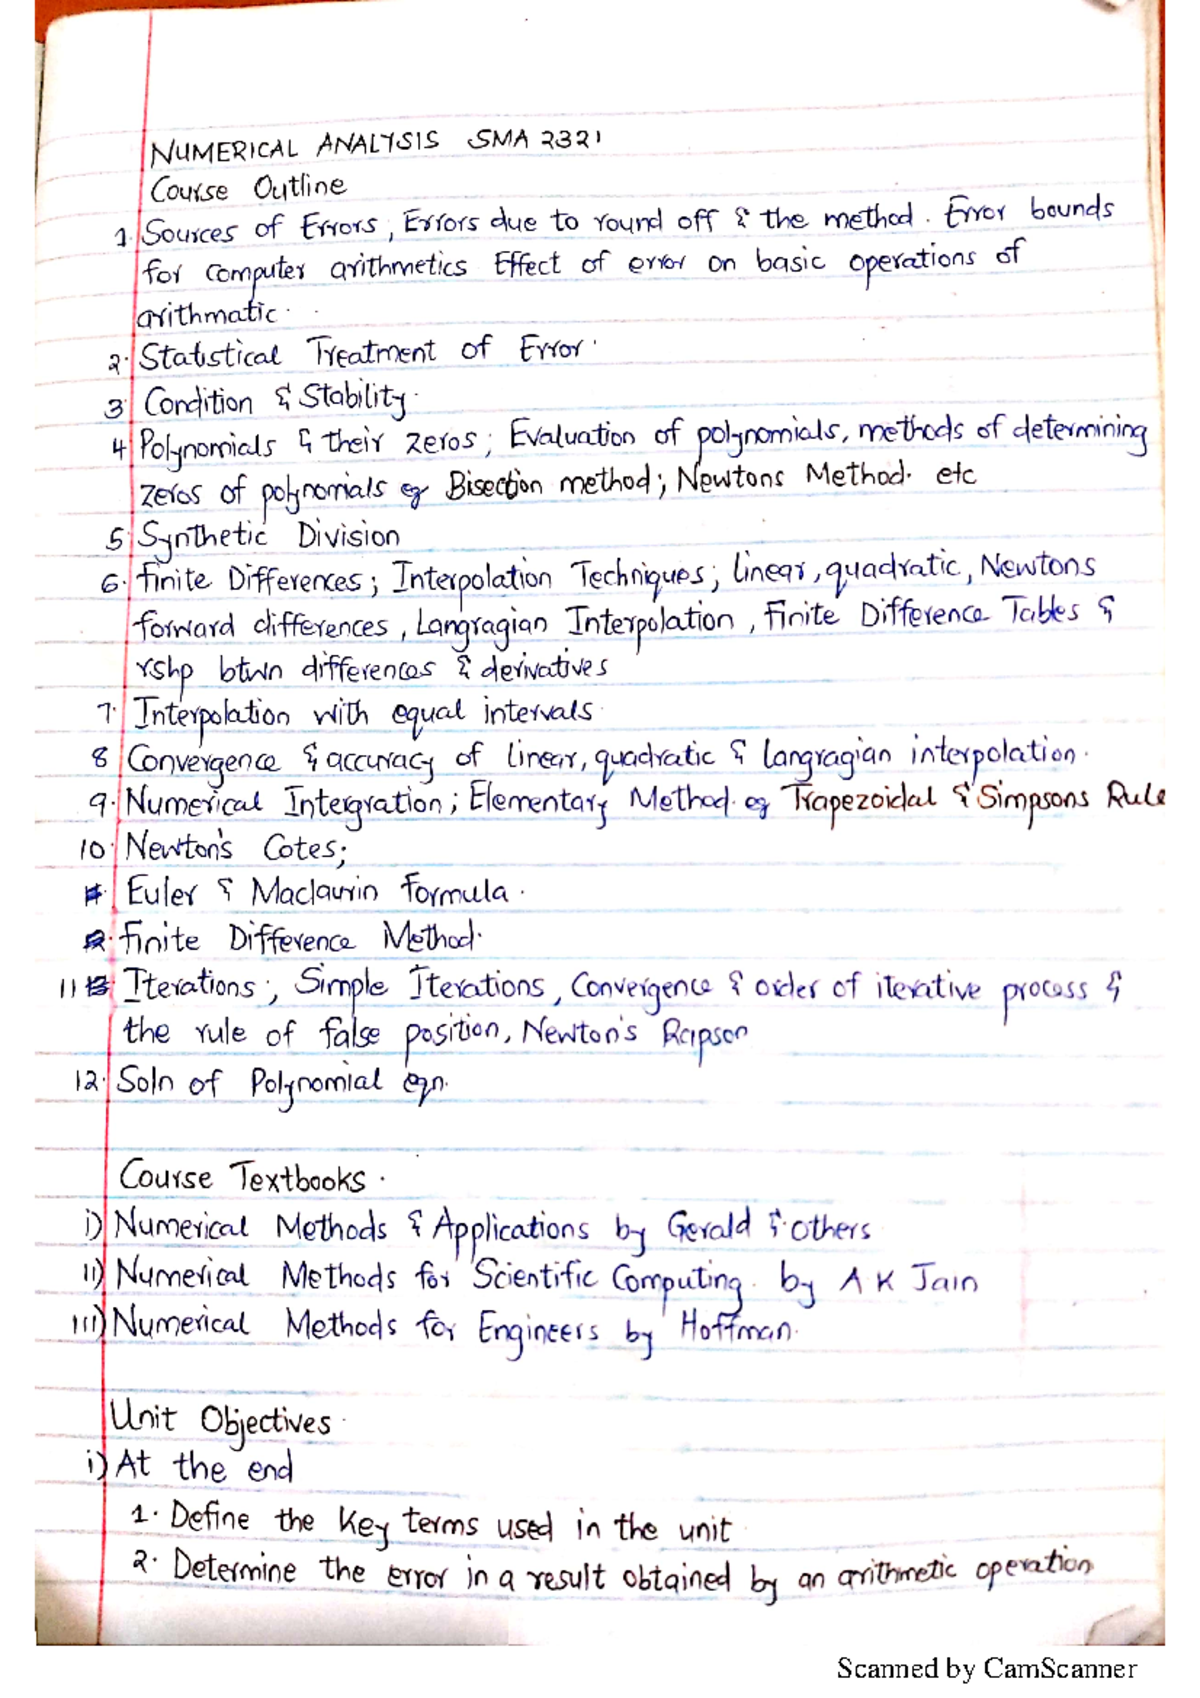 NUMERICAL ANALYSIS SMA 2321
Course Outline
1. Sources of Errors, Errors due to round off & the method. Error bounds
for computer arithmetics Effect of error on basic operations of
arithmatic.
2. Statistical Treatment of Error.
3 Condition & Stability.
4 Polynomials & their zeros; Evaluation of polynomials, methods of determining
zeros of polynomials eg Bisection method; Newtons Method. etc
5 Synthetic Division
6. Finite Differences; Interpolation Techniques; linear, quadratic, Newtons
forward differences, Langragian Interpolation, Finite Difference Tables &
rshp btwn differences & derivatives
7. Interpolation with equal intervals.
8 Convergence & accuracy of linear, quadratic & Langragian interpolation.
9. Numerical Intergration; Elementary Method. eg Trapezoidal & Simpsons Rule
10. Newton's Cotes;
Euler & Maclaurin Formula.
Finite Difference Method.
11 Iterations; Simple Iterations, Convergence & order of iterative process &
the rule of false position, Newton's Rapson
12. Soln of Polynomial eqn.
Course Textbooks.
i) Numerical Methods & Applications by Gerald & others
ii) Numerical Methods for Scientific Computing. by A K Jain
iii) Numerical Methods for Engineers by Hoffman.
Unit Objectives.
i) At the end
1. Define the key terms used in the unit
2. Determine the error in a result obtained by an arithmetic operation
Scanned by CamScanner